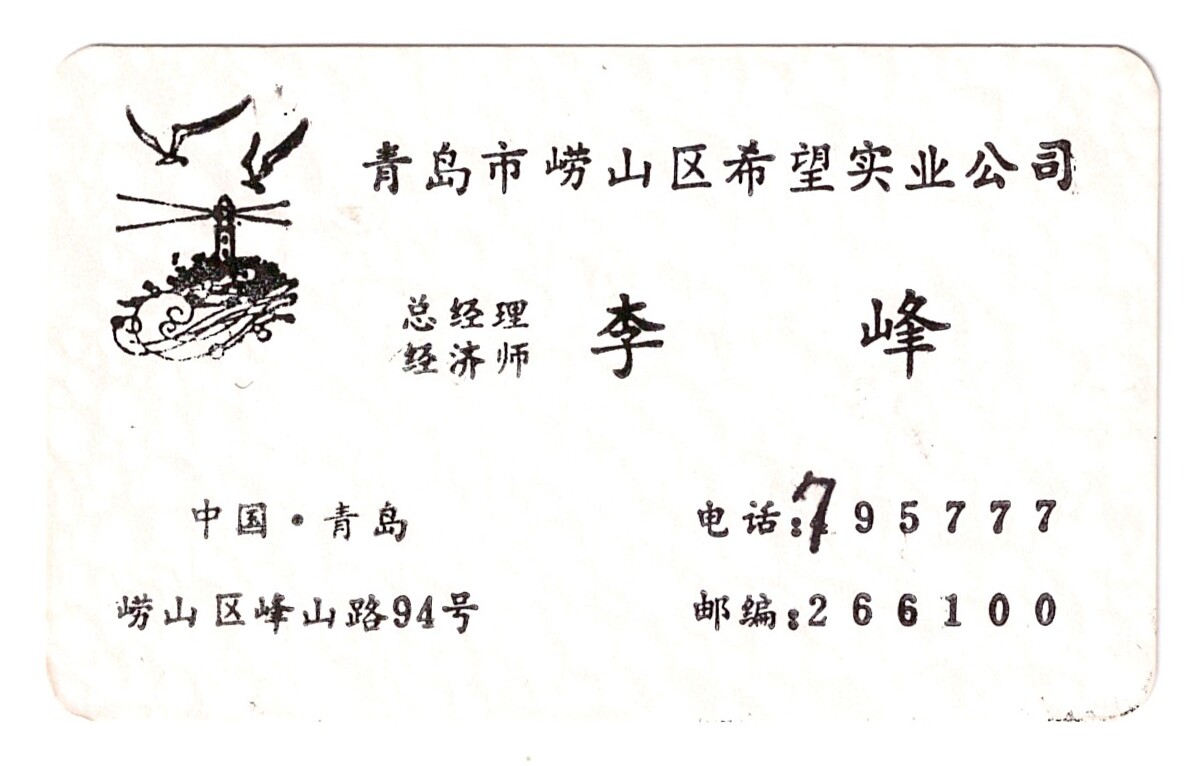 青岛市崂山区希望实业公司
总经理
经济师
李 峰
中国·青岛
崂山区峰山路94号
电话:795777
邮编:266100